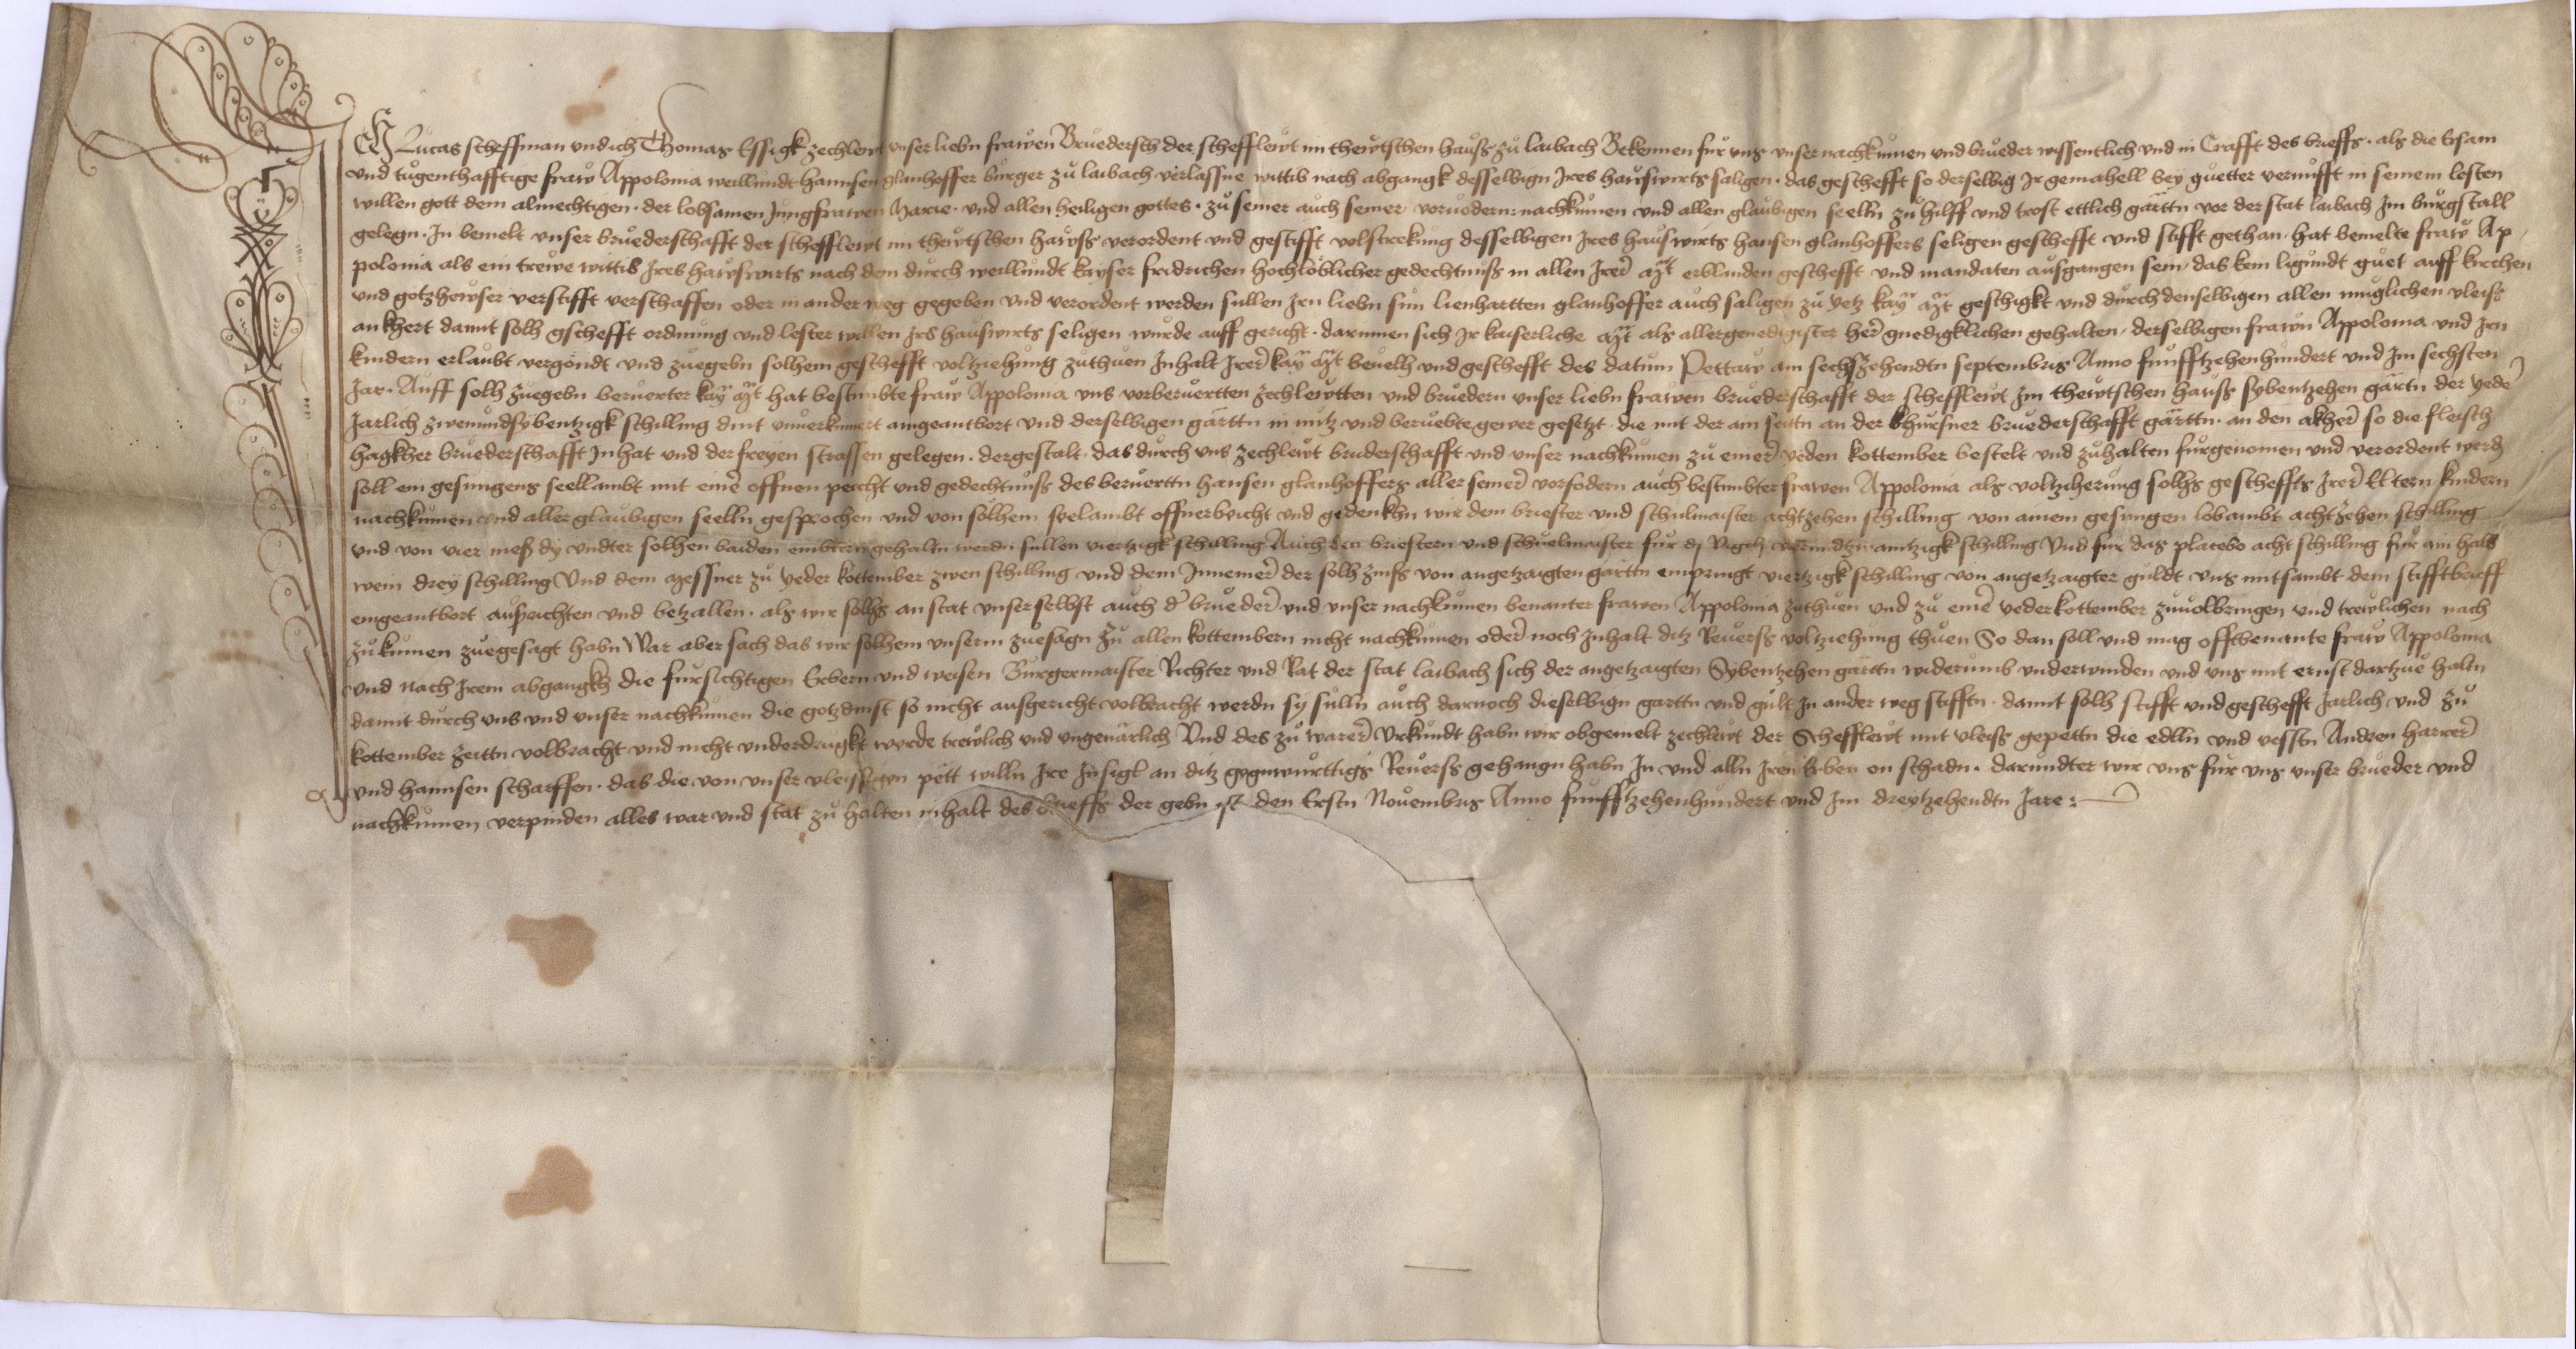 Ich Lucas scheffman und ich Thomas Essigk zechlewt unser liebn frawen Bruedersch der schefflewt im thewtschen hauss zu laibach Bekennen für uns unser nachkumen und brueder wissentlich und in Crafft des brieffs · als die Ersam
und tugenthafftige fraw Appolonia weillundt hannsen glanhoffer burger zu laibach verlassne wittib nach abgangk desselbign Ires hawswirts saligen · das geschefft so derselbig Ir gemahell bey guetter vernufft in seinem lesten
willen gott dem almechtigen · der lobsamen Jungfrawen Marie · und allen heiligen gottes · zu seiner auch seiner vorvodern nachkumen und allen glaubigen seelln zu hilff und trost ettlich gärttn vor der stat laibach Im burgstall
gelegn · In bemelt unser bruederschafft der schefflewt im thewtschen hawss verordent und gestifft volstreckung desselbigen Ires hauswirts hansen glanhoffers seligen geschefft und stifft gethan · hat bemelte fraw Ap
polonia als ein trewe wittib Ires hawswirts nach dem durch weillundt kayser fridrichen hochloblicher gedechtnuss in allen Irer Mt erblanden geschefft und mandaten ausgangen sein, das kein ligundt guet auff kirchen
und gotzhewser verstifft verschaffen oder in ander weg gegeben und verordent werden sullen Iren liebn sun lienhartten glanhoffer auch saligen zu yetz kay Mt geschigkt und durch denselbigen allen muglichen vleiss
ankhert damit solh gschefft ordnung und lester willen Irs hauswirts seligen wurde auff gericht · darinnen sich Ir kaiserliche Mt als allergenedigister her gnedigklichen gehalten, derselbigen frawn Appolonia und Iren
kindern erlaubt vergöndt und zuegebn solhem geschefft voltziehung zuthuen Inhalt Irer kay Mt bevelh und geschefft des datum Pettaw am sechszehendtn septembris Anno funfftzehenhundert und Im sechsten
Jar · Auff solh zuegebn beruerter kay Mt hat bestimbte fraw Appolonia uns vorberuertten zechlewtten und bruedern unser liebn frawen bruederschafft der schefflewt Im thewtschen hauss sybentzehen gärtn der yeder
Jarlich zwenundsybentzigk schilling dint unverkumert aingeantbort und derselbigen gärttn in nutz und beruebte gewer gesetzt · die mit der ain seittn an der khursner bruederschafft gärttn · an den akher so die fleisch
hagkher bruederschafft Inhat und der freyen strassen gelegen · dergestalt · das durch uns zechlewt bruderschafft und unser nachkumen zu einer yeden kottember bestelt und zuhalten furgenomen und verordent werd
soll ein gesungens seellambt mit einer offnen peicht und gedechtnuss des beruerttn hansen glanhoffers aller seiner vorfodern auch bestimbter frawen Appolonia als voltzieherung solhs gescheffts Irer Eltern kindern
nachkumen und aller glaubigen seelln gesprochen und von solhem seelambt offner beicht und gedenkhn wir dem briester und schulmaister achtzehen schilling von ainem gesungen lobambt achtzehen schilling
und von vier mess dy undter solhen baiden embtern gehaltn werdn sullen viertzigk schilling Auch den briestern und schuelmaister fur dj Vigilj vierundtzwaintzigk schilling Und fur das placebo acht schilling fur ain halb
wein drey schilling Und dem Messner zu yeder kottember zwen schilling und dem Innemer der solh zinss von angetzaigten gärttn einpringt viertzigk schilling von angetzaigter guldt uns mitsambt dem stifftbrieff
eingeantbort ausrichten und betzallen · als wir solhs an stat unser selbst auch der brueder und unser nachkumen benanter frawen Appolonia zuthuen und zu einer yeder kottember zuvolbringen und trewlichen nach
zukumen zuegesagt habn War aber sach das wir solhem unserm zuesagn zu allen kottembern nicht nachkumen oder noch Inhalt ditz Reverss voltziehung thuen So dan soll und mag offtbenante fraw Appolonia
und nach Irem abgangkh die fursichtigen Erbern und weisen Burgermaister Richter und Rat der stat laibach sich der angetzaigten Sybentzehen gärttn widerumb underwinden und uns mit ernst dartzue haltn
damit durch uns und unser nachkumen die gotzdinst so nicht ausgericht volbracht werdn sy sulln auch darnoch dieselbign garttn und gult In ander weg stifftn · damit solh stifft und geschefft Jarlich und zu
kottember zeittn volbracht und nicht underdrugkt wurde trewlich und ungevärlich Und des zu warer Urkundt habn wir obgemelt zechlewt der Schefflewt mit vleiss gepettn die edlln und vesstn Andren harrer
und hannsen scharffen · das die von unser vleissign pett willn Ire Insigl an ditz gegnwurttigs Reverss gehangn habn In und alln Iren Erben on schadn · darundter wir uns fur uns unser brueder und
nachkumen verpinden alles war und stät zu halten inhalt des brieffs der gebn ist den Erstn Novembris Anno funfftzehenhundert und Im dreytzehendtn Jare :